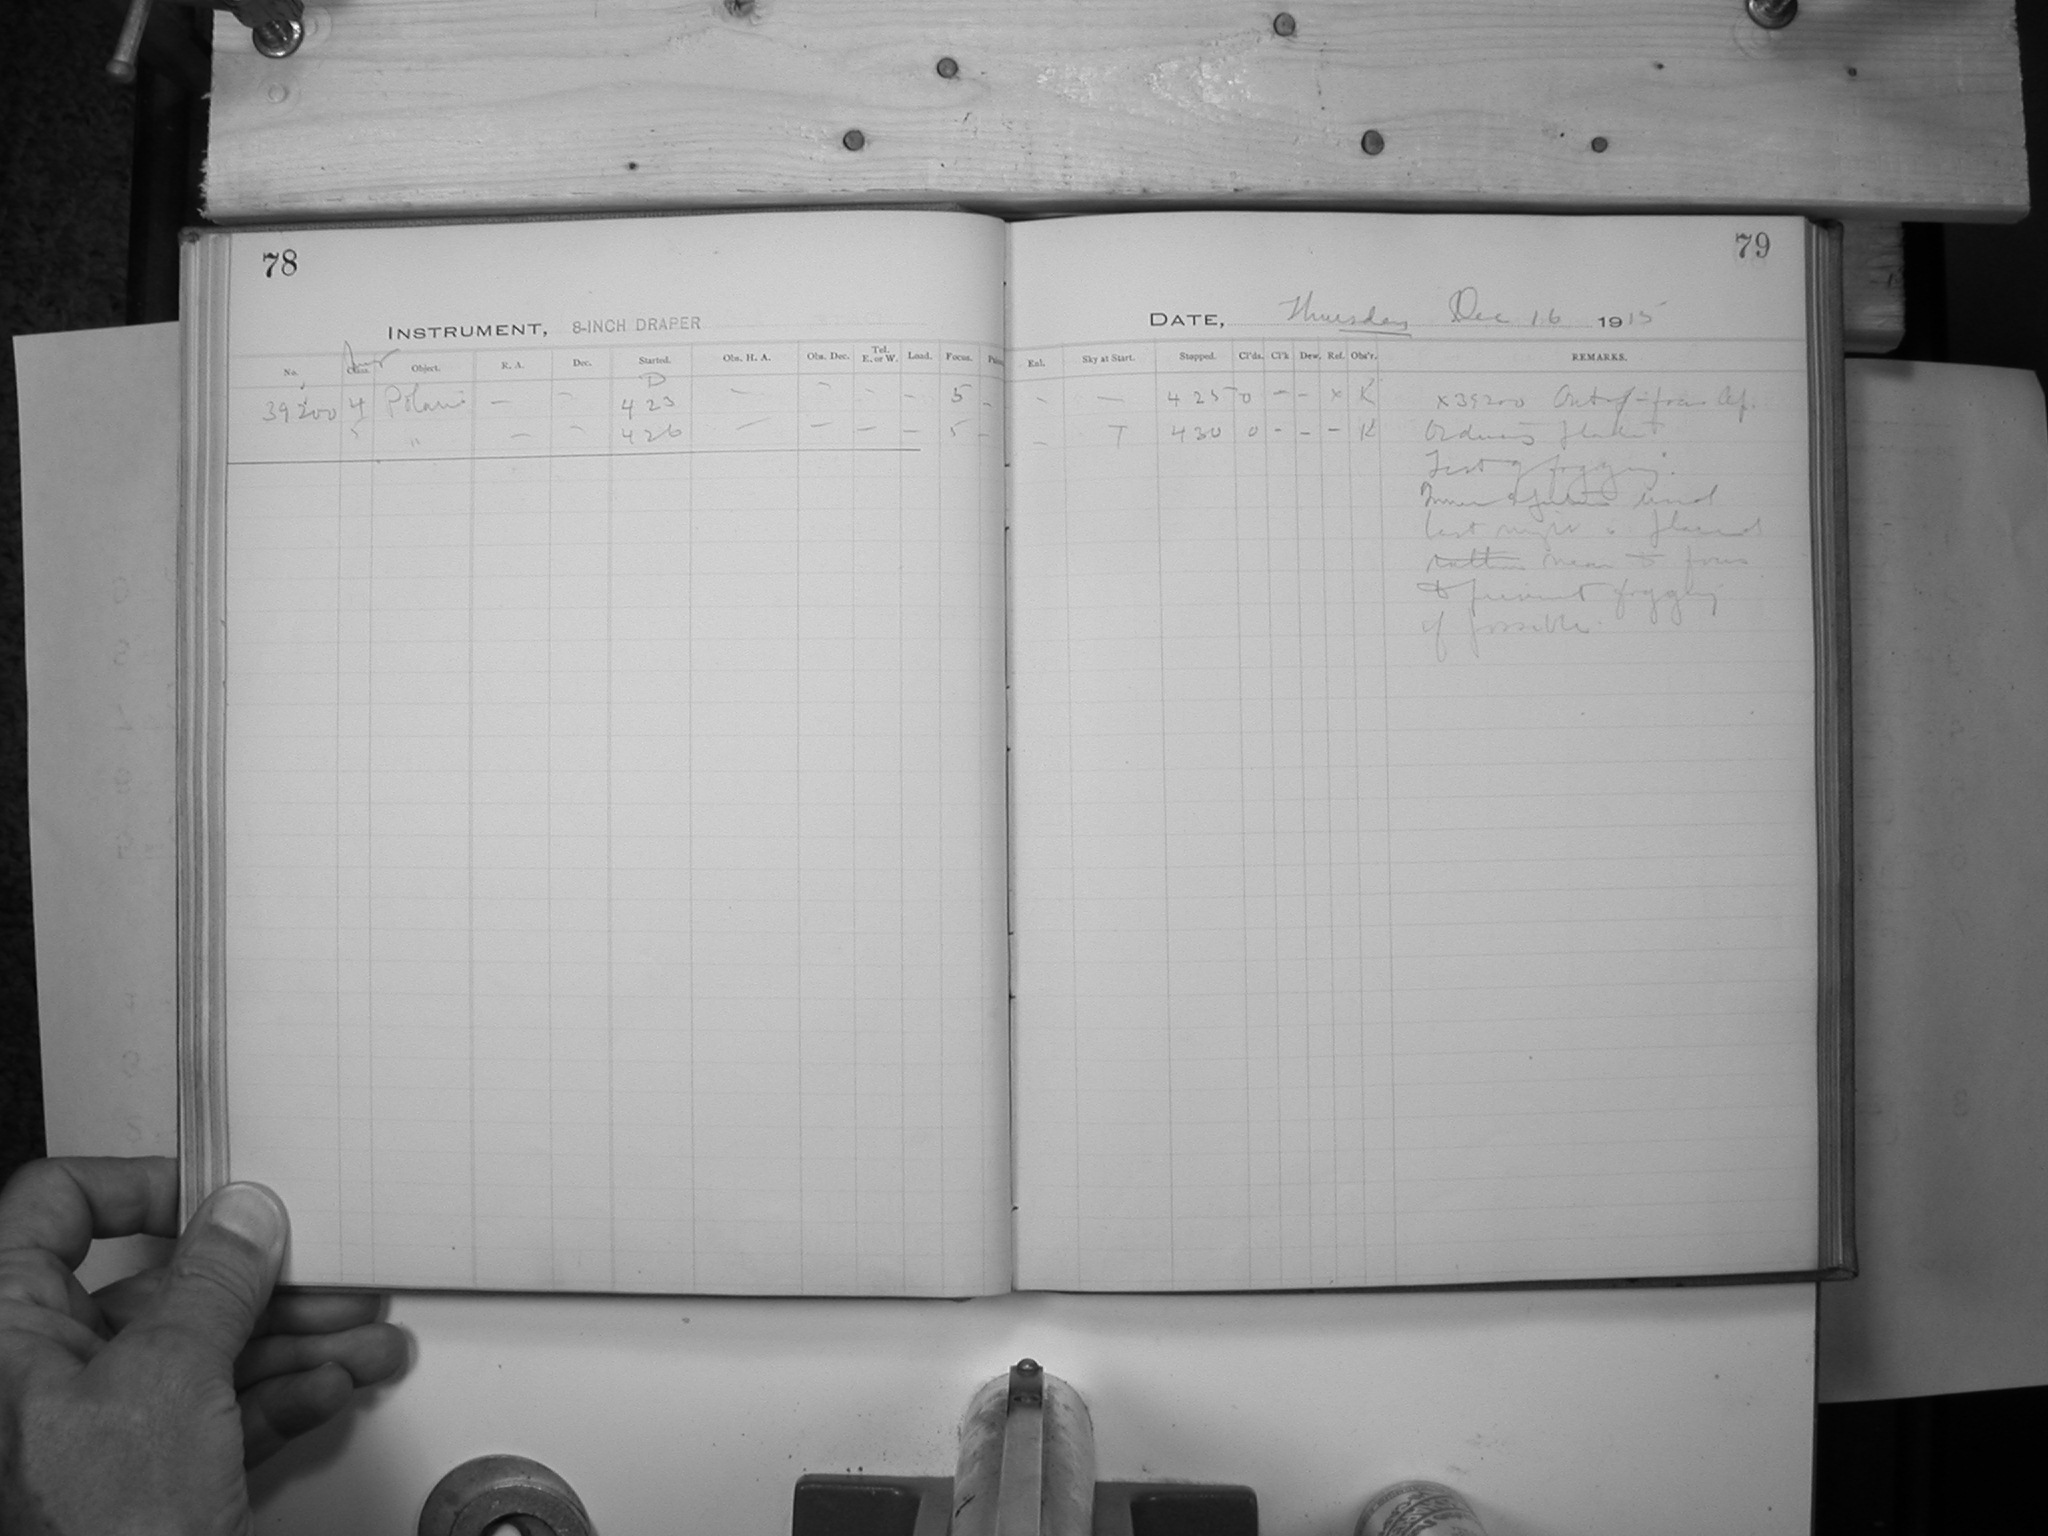 78
INSTRUMENT, 8-INCH DRAPER
No. Class. Object. R. A. Dec. Started. Obs. H. A. Obs. Dec. Tel. E. or W. Load. Focus.
D
39200 4 Polaris — — 4 23 — — — — 5 —
5 " — — 4 26 — — — — 5 —
79
DATE, Thursday Dec 16 1915
Enl. Sky at Start. Stopped. Cl'ds. Cl'k Dew. Ref. Obs'r. REMARKS.
- — 4 25 0 - - x K x39200 Out of focus Ap.
- T 4 30 0 - - - K
Test of fogging.
used
last night placed
rather near to focus
to prevent fogging
if possible.